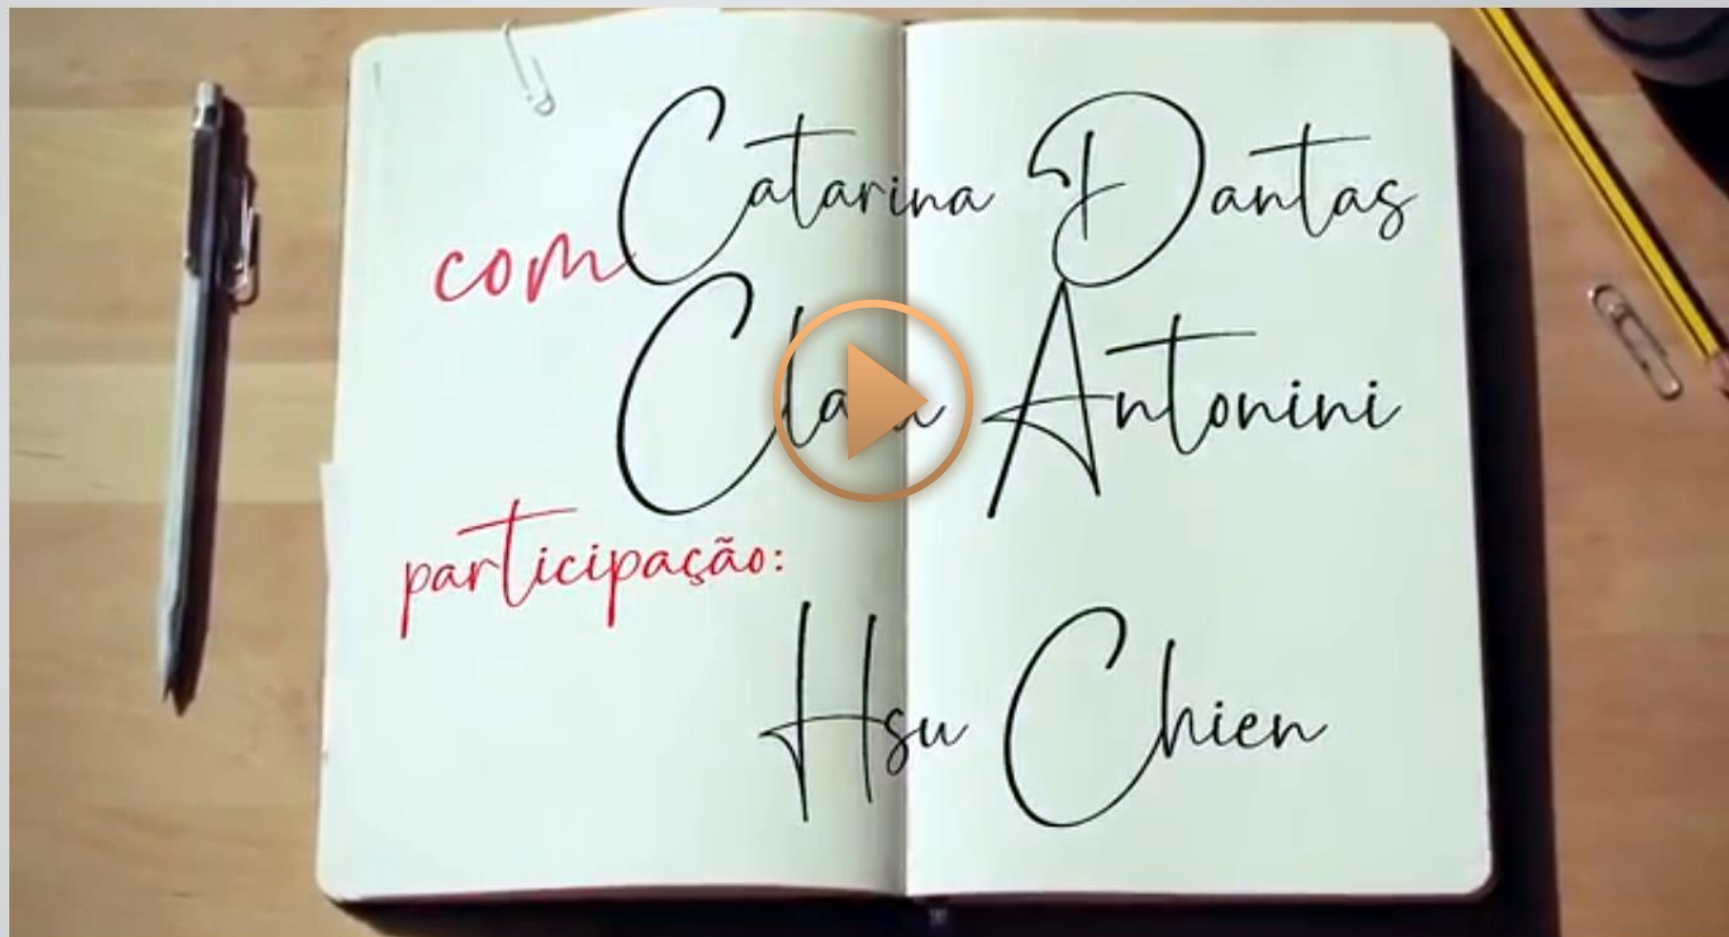 com Catarina Dantas
Antonini
participação:
Hsu Chien